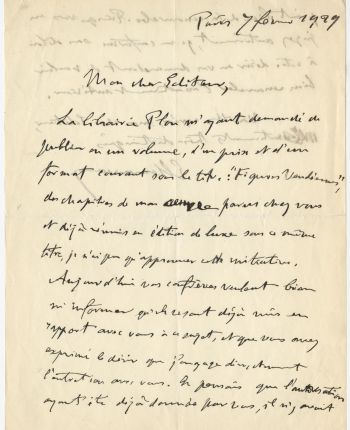 Paris 7 février 1929
Mon cher Editeur,
La librairie Plon m'ayant demandé de
publier en un volume, d'un prix et d'un
format courant sous le titre : "Figures Vendéennes",
des chapitres de mon parus chez vous
et déjà réunis en édition de luxe sous ce même
titre, je n'ai pu qu'approuver cette initiative.
Aujourd'hui vos confrères veulent bien
m'informer qu'ils se sont déjà mis en
rapport avec vous à ce sujet, et que vous avez
exprimé le désir que j'engage directement
l'entretien avec vous. Je pensais que l'autorisation
ayant été déjà donnée par vous, il n'y avait